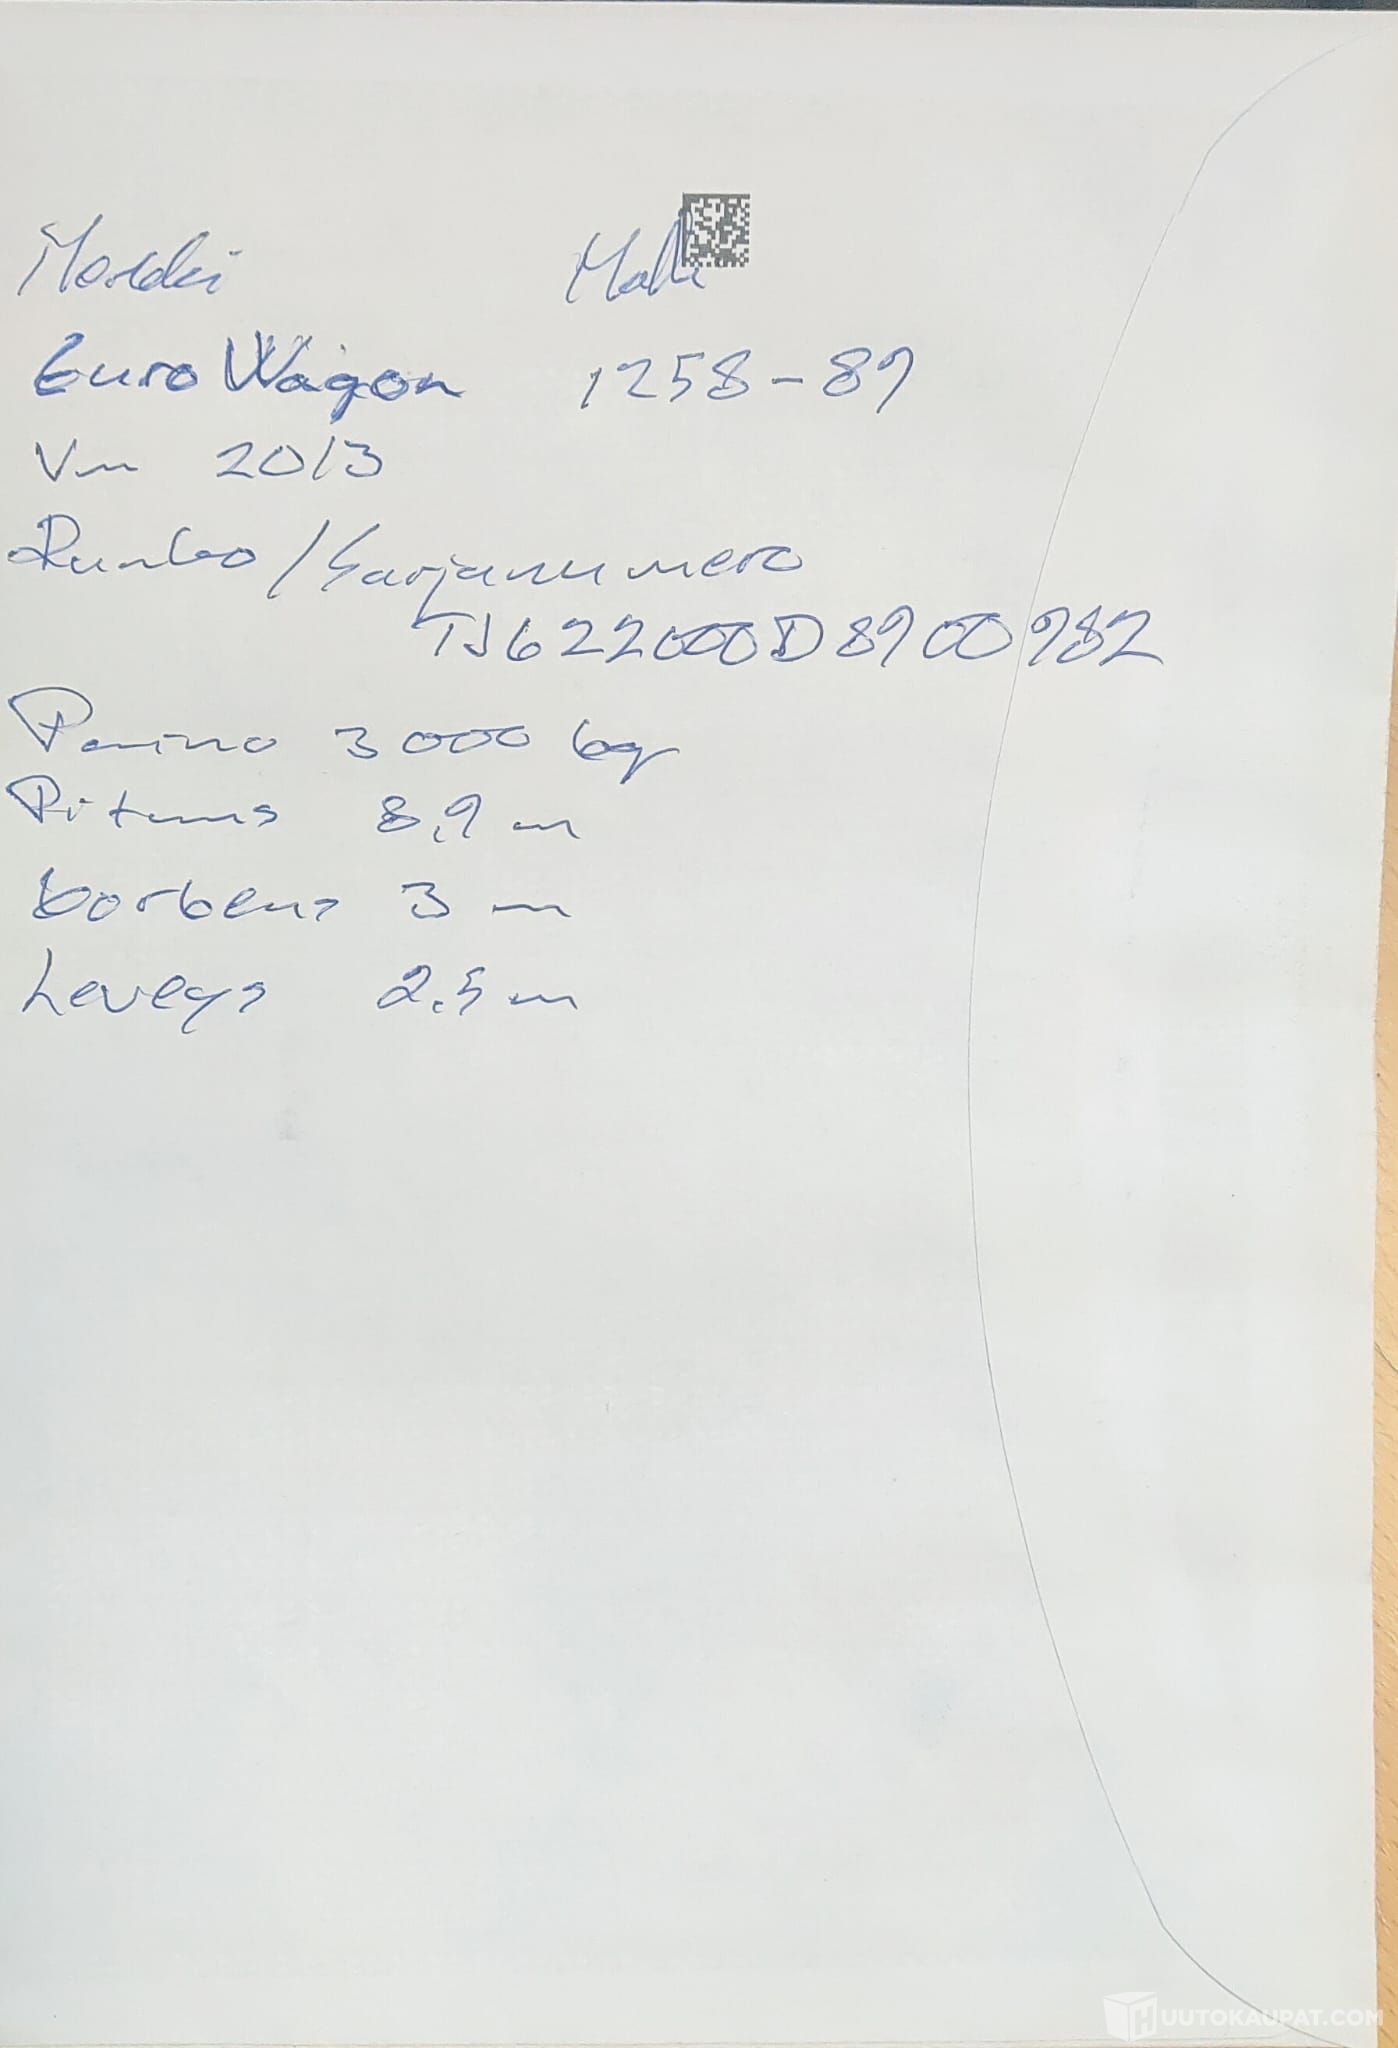 Merkki Malli
Euro Wagon 1258-89
Vm 2013
Runko / Sarjanumero
TJ622000D8900982
Paino 3000 kg
Pituus 8,9 m
korkeus 3 m
Leveys 2.5 m
HUUTOKAUPAT.COM